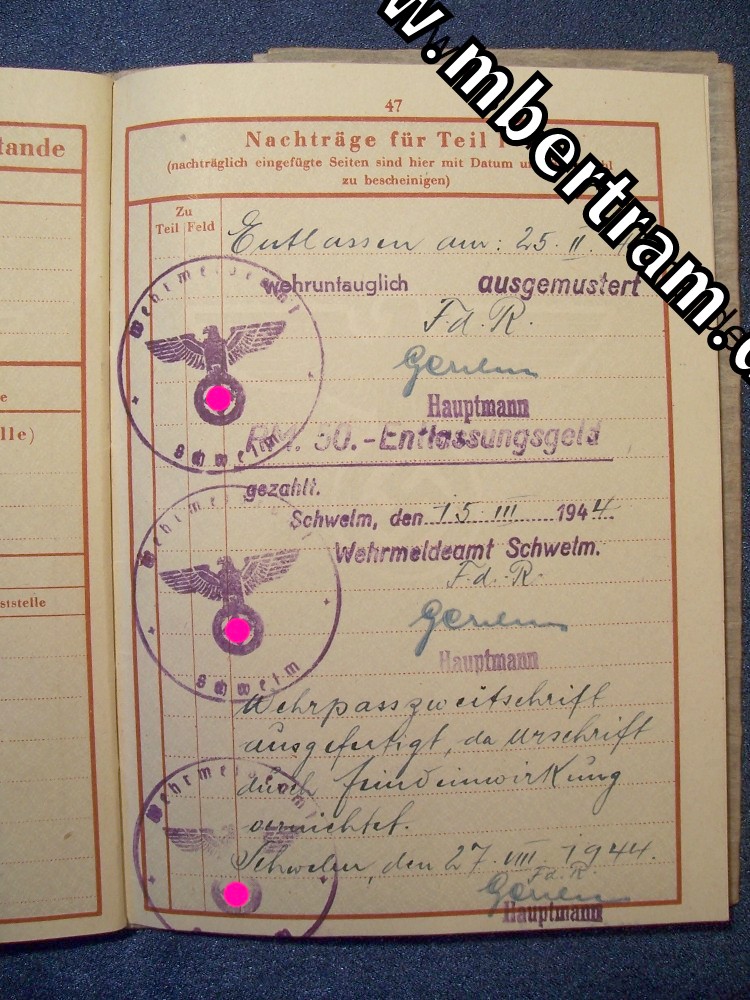 www.mbertram.de
47
tande
Nachträge für Teil I
(nachträglich eingefügte Seiten sind hier mit Datum
zu bescheinigen)
Zu
Teil Feld
Entlassen am: 25. II.
wehruntauglich ausgemustert
F.d.R.
Hauptmann
RM. 50.-Entlassungsgeld
gezahlt.
Schwelm, den 15. III 1944.
Wehrmeldeamt Schwelm.
F.d.R.
Hauptmann
Wehrpasszweitschrift
ausgefertigt, da Urschrift
durch Feindeinwirkung
vernichtet.
Schwelm, den 27. VIII. 1944.
F.d.R.
Hauptmann
Wehrmeldeamt
Schwelm
Wehrmeldeamt
Schwelm
Wehrmeldeamt
e
lle)
ststelle